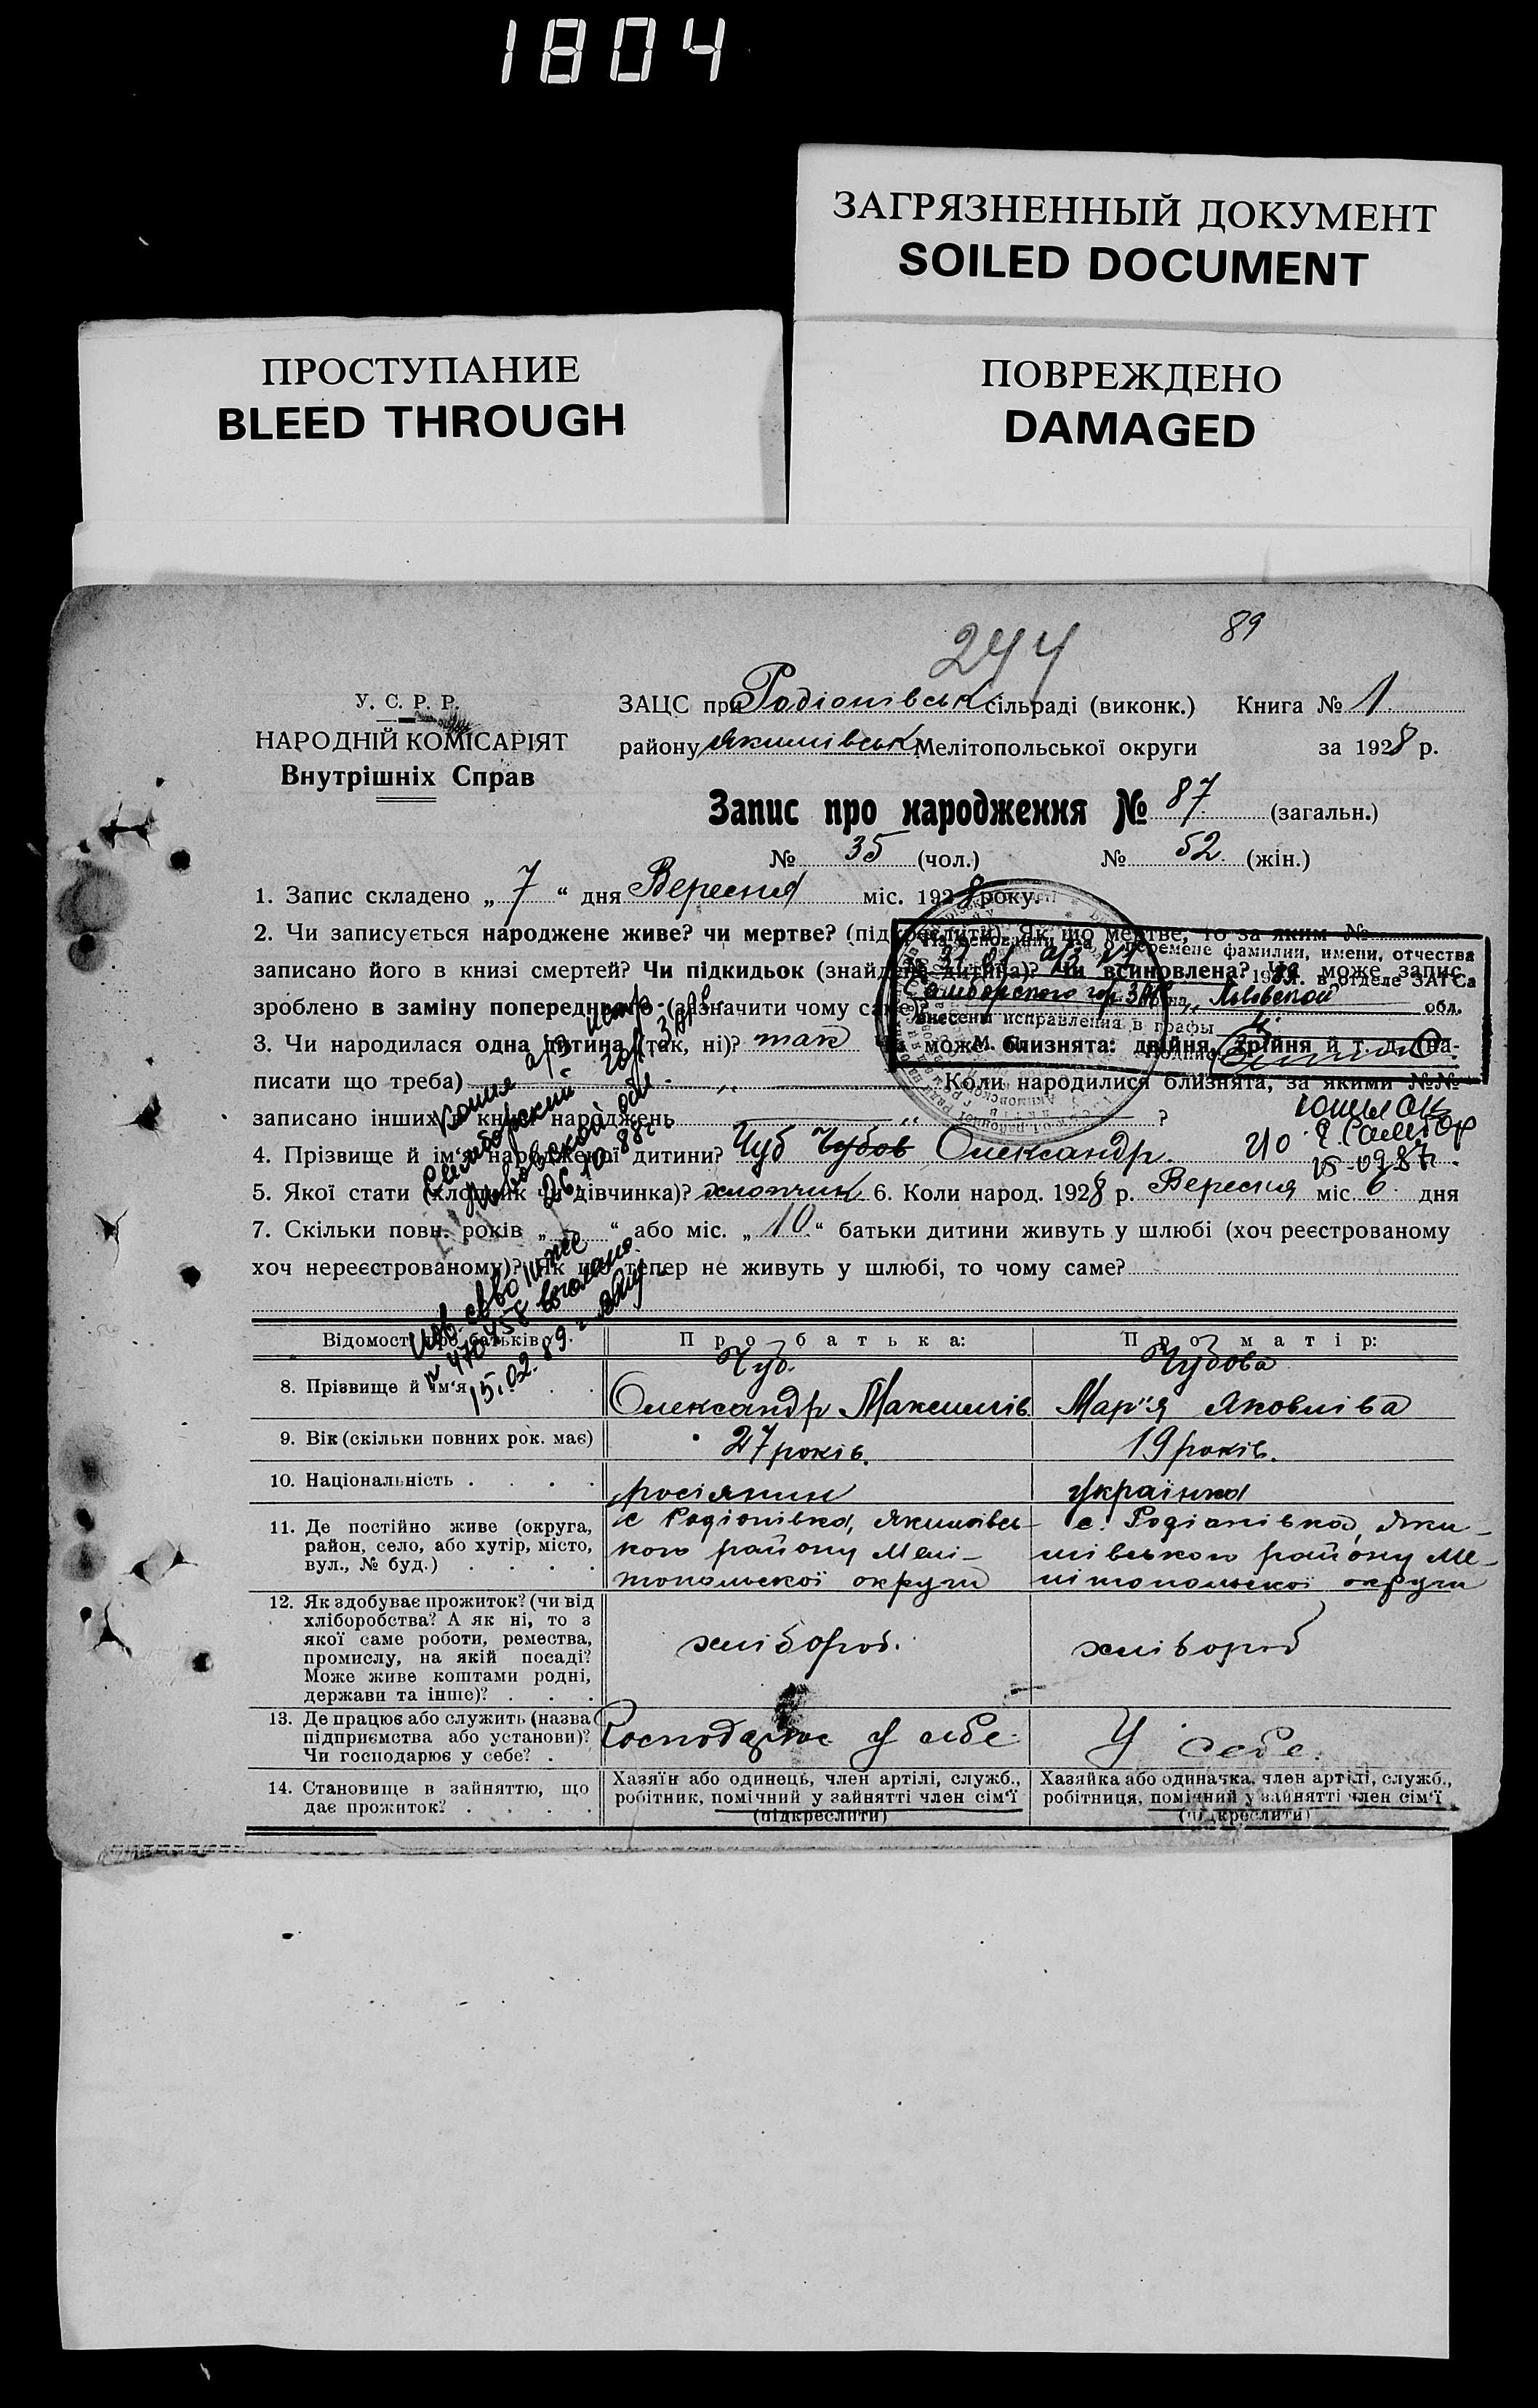 1804
ЗАГРЯЗНЕННЫЙ ДОКУМЕНТ
SOILED DOCUMENT
ПРОСТУПАНИЕ
BLEED THROUGH
ПОВРЕЖДЕНО
DAMAGED
89
244
У. С. Р. Р.
НАРОДНІЙ КОМІСАРІЯТ
Внутрішніх Справ
ЗАЦС при Радіонівськ сільраді (виконк.) Книга № 1
району Якимівськ Мелітопольської округи за 1928 р.
Запис про народження № 87 (загальн.)
№ 35 (чол.) № 52 (жін.)
1. Запис складено „ 7 “ дня Вересня міс. 1928 року.
2. Чи записується народжене живе? чи мертве? (підкреслити). Як що мертве, то за яким №
записано його в книзі смертей? Чи підкидьок (знайдена дитина)? Чи всиновлена? Чи може запис
зроблено в заміну попереднього (зазначити чому саме)
3. Чи народилася одна дитина (так, ні)? так Чи може близнята: двійня, трійня й т. д. (на-
писати що треба) Коли народилися близнята, за якими №№
записано інших в книзі народжень ?
4. Прізвище й ім'я народженої дитини? Чуб Чубов Олександр.
5. Якої стати (хлопчик чи дівчинка)? хлопчик 6. Коли народ. 1928 р. Вересня міс. 6 дня
7. Скільки повн. років „ “ або міс. „ 10 “ батьки дитини живуть у шлюбі (хоч реєстрованому
хоч нереєстрованому)? Як що тепер не живуть у шлюбі, то чому саме?
о перемене фамилии, имени, отчества
в отделе ЗАГСа
Самборского гор. Львовской обл.
внесены исправления в графы 4
М. П.
г. Самбор
15-09-87г.
Самборский гор.
Львовской обл.
26.10.88г.
№ 470458
15.02.89г.
Відомості про батьків: Про батька: Про матір:
8. Прізвище й ім'я Чуб. Олександр Максимів Чубова Мар'я Яковліва
9. Вік (скільки повних рок. має) 27 років. 19 років.
10. Національність . . . . росіянин українка
11. Де постійно живе (округа, район, село, або хутір, місто, вул., № буд.) . . . .
с Радіонівка, Якимівсь-
кого району Мелі-
топольскої округи
с. Радіонівка, Яки-
мівського району Ме-
літопольскої округи
12. Як здобуває прожиток? (чи від
хліборобства? А як ні, то з
якої саме роботи, ремества,
промислу, на якій посаді?
Може живе коштами родні,
держави та інше)? . . .
хлібороб. хлібороб
13. Де працює або служить (назва
підприємства або установи)?
Чи господарює у себе? .
Господарює у себе У себе.
14. Становище в зайняттю, що
дає прожиток? . . . .
Хазяїн або одинець, член артілі, служб.,
робітник, помічний у зайнятті член сім'ї
(підкреслити)
Хазяйка або одиначка, член артілі, служб.,
робітниця, помічний у зайнятті член сім'ї
(підкреслити)